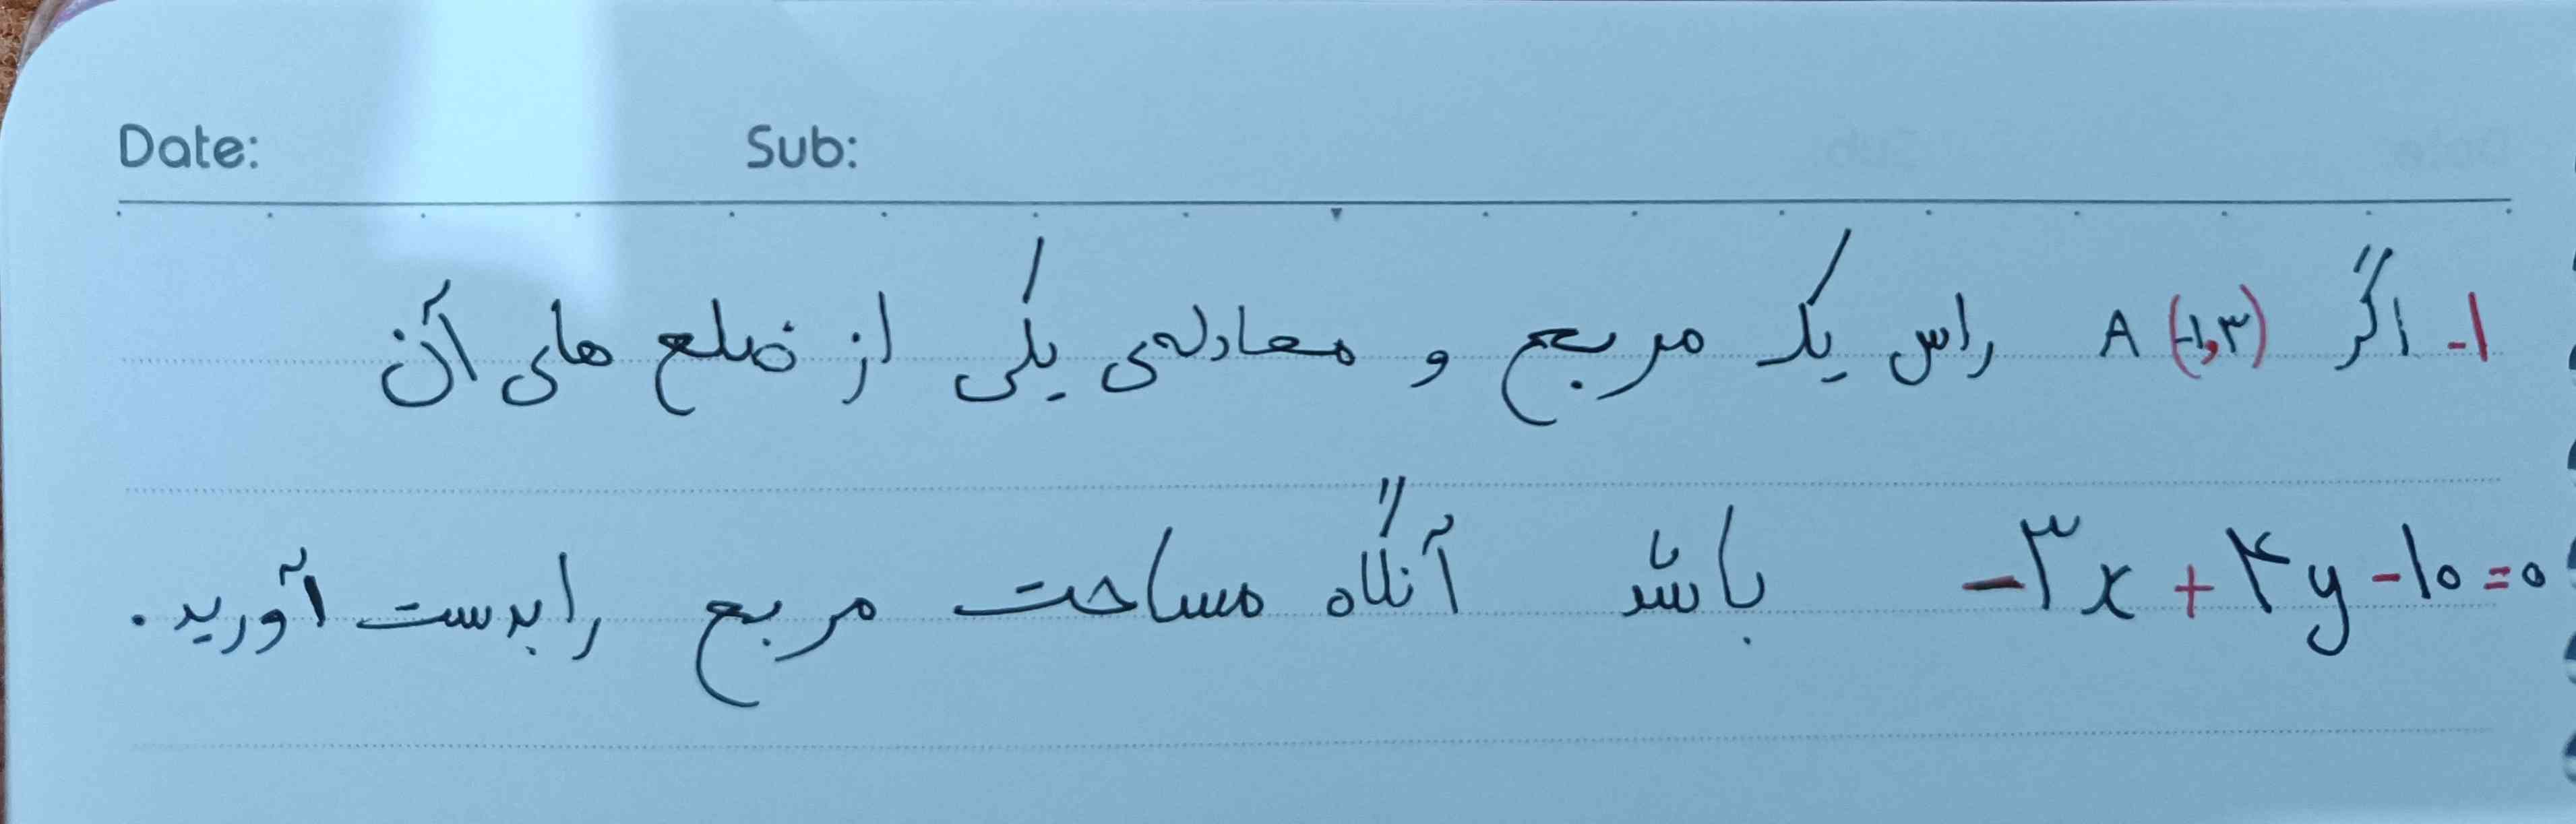 Date: Sub:
۱- اگر A (-۱,۳) راس یک مربع و معادله‌ی یکی از ضلع های آن
-۳x + ۴y -۱۰ =۰ باشد آنگاه مساحت مربع را بدست آورید.